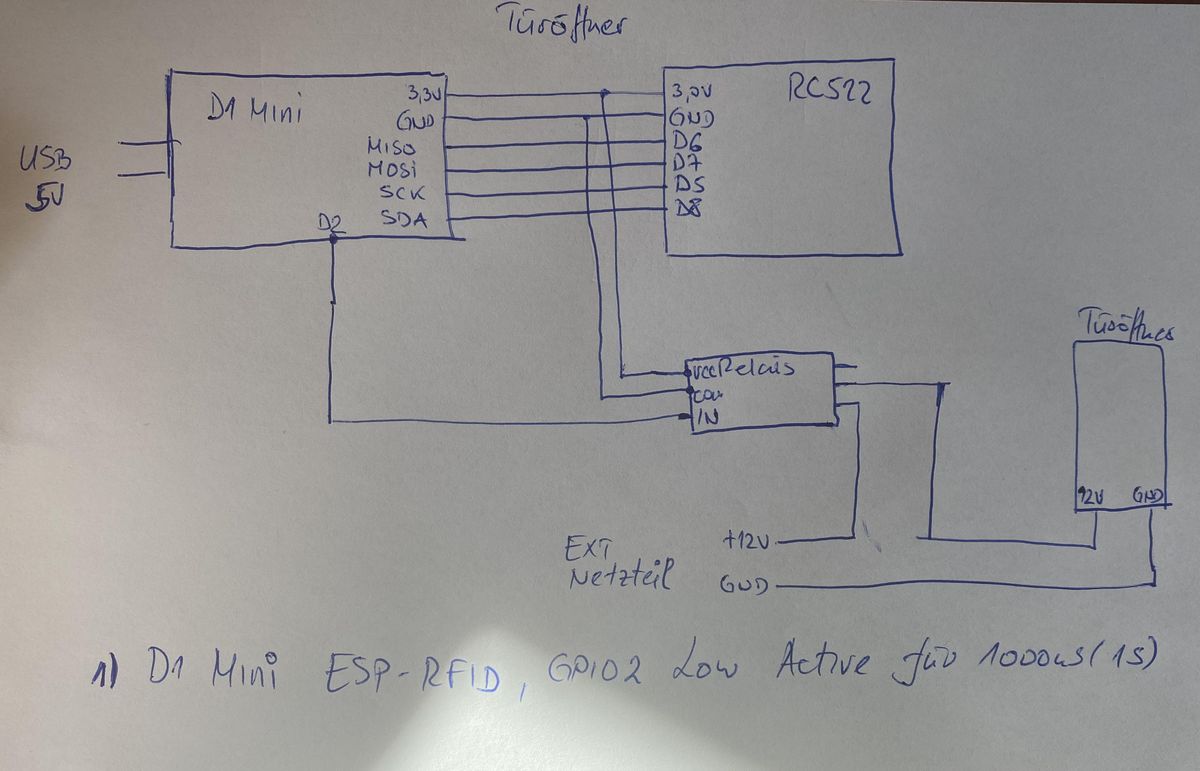 Türöffner
D1 Mini
3,3V
GND
MISO
MOSi
SCK
SDA
D2
USB
5V
RC522
3,0V
GND
D6
D7
D5
D8
VCC Relais
COM
IN
Türöffner
12V GND
EXT
Netzteil
+12V
GND
1) D1 Mini ESP-RFID, GPIO2 Low Active für 1000ms(1S)